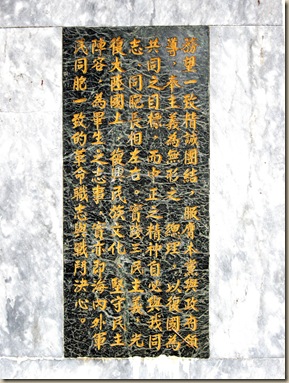 務望一致精誠團結，服膺本黨與政府領
導，奉主義為無形之 總理，以復國為
共同之目標，而中正之精神自必與我同
志、同胞長相左右。實踐三民主義，光
復大陸國土，復興民族文化，堅守民主
陣容，為畢生之志事，實亦即海內外軍
民同胞一致的革命職志與戰鬥決心